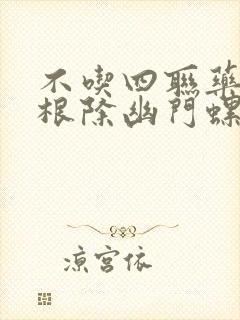 不喫四聯藥
根除幽門螺
涼宮依